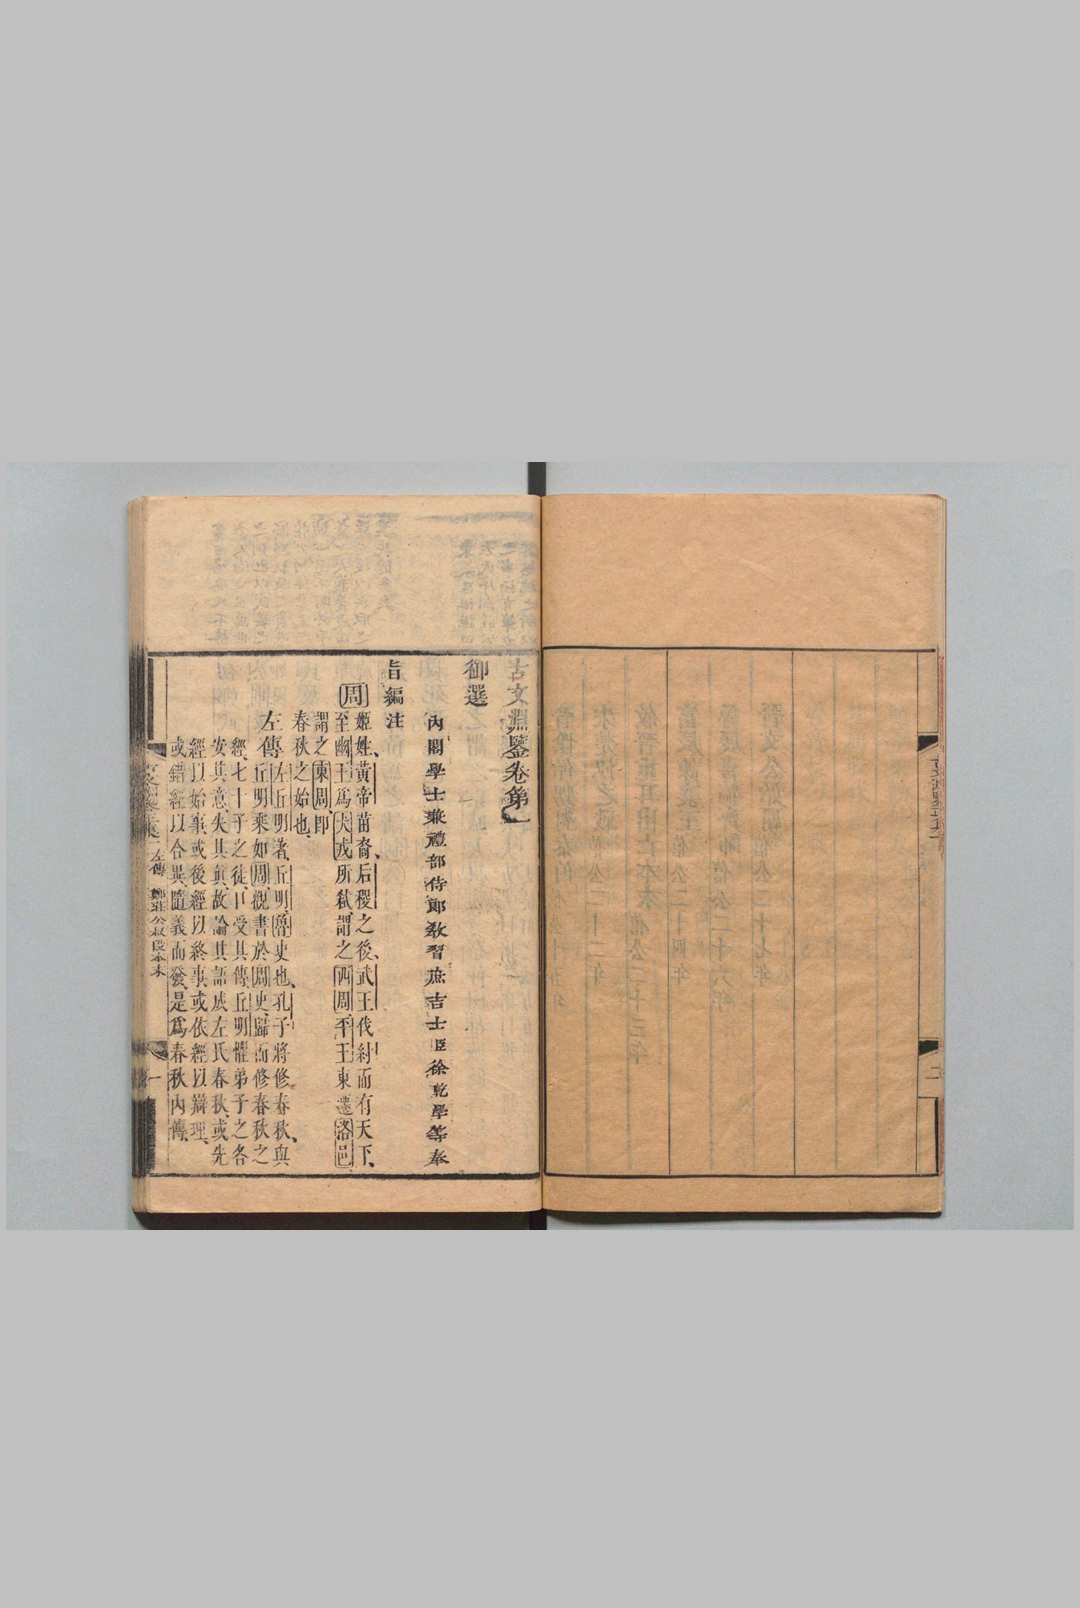 古文淵鑒卷第一
御選
內閣學士兼禮部侍郎教習庶吉士臣徐乾學等奉
旨編注
周姬姓黃帝苗裔后稷之後武王伐紂而有天下
至幽王爲犬戎所弑謂之西周平王東遷洛邑
謂之東周即
春秋之始也
左傳左丘明著丘明魯史也孔子將修春秋與
丘明乘如周觀書於周史歸而修春秋之
經七十子之徒口受其傳丘明懼弟子之各
安其意失其真故論其語成左氏春秋或先
經以始事或後經以終事或依經以辯理
或錯經以合異隨義而發是爲春秋內傳
左傳 鄭莊公叔段本末
一